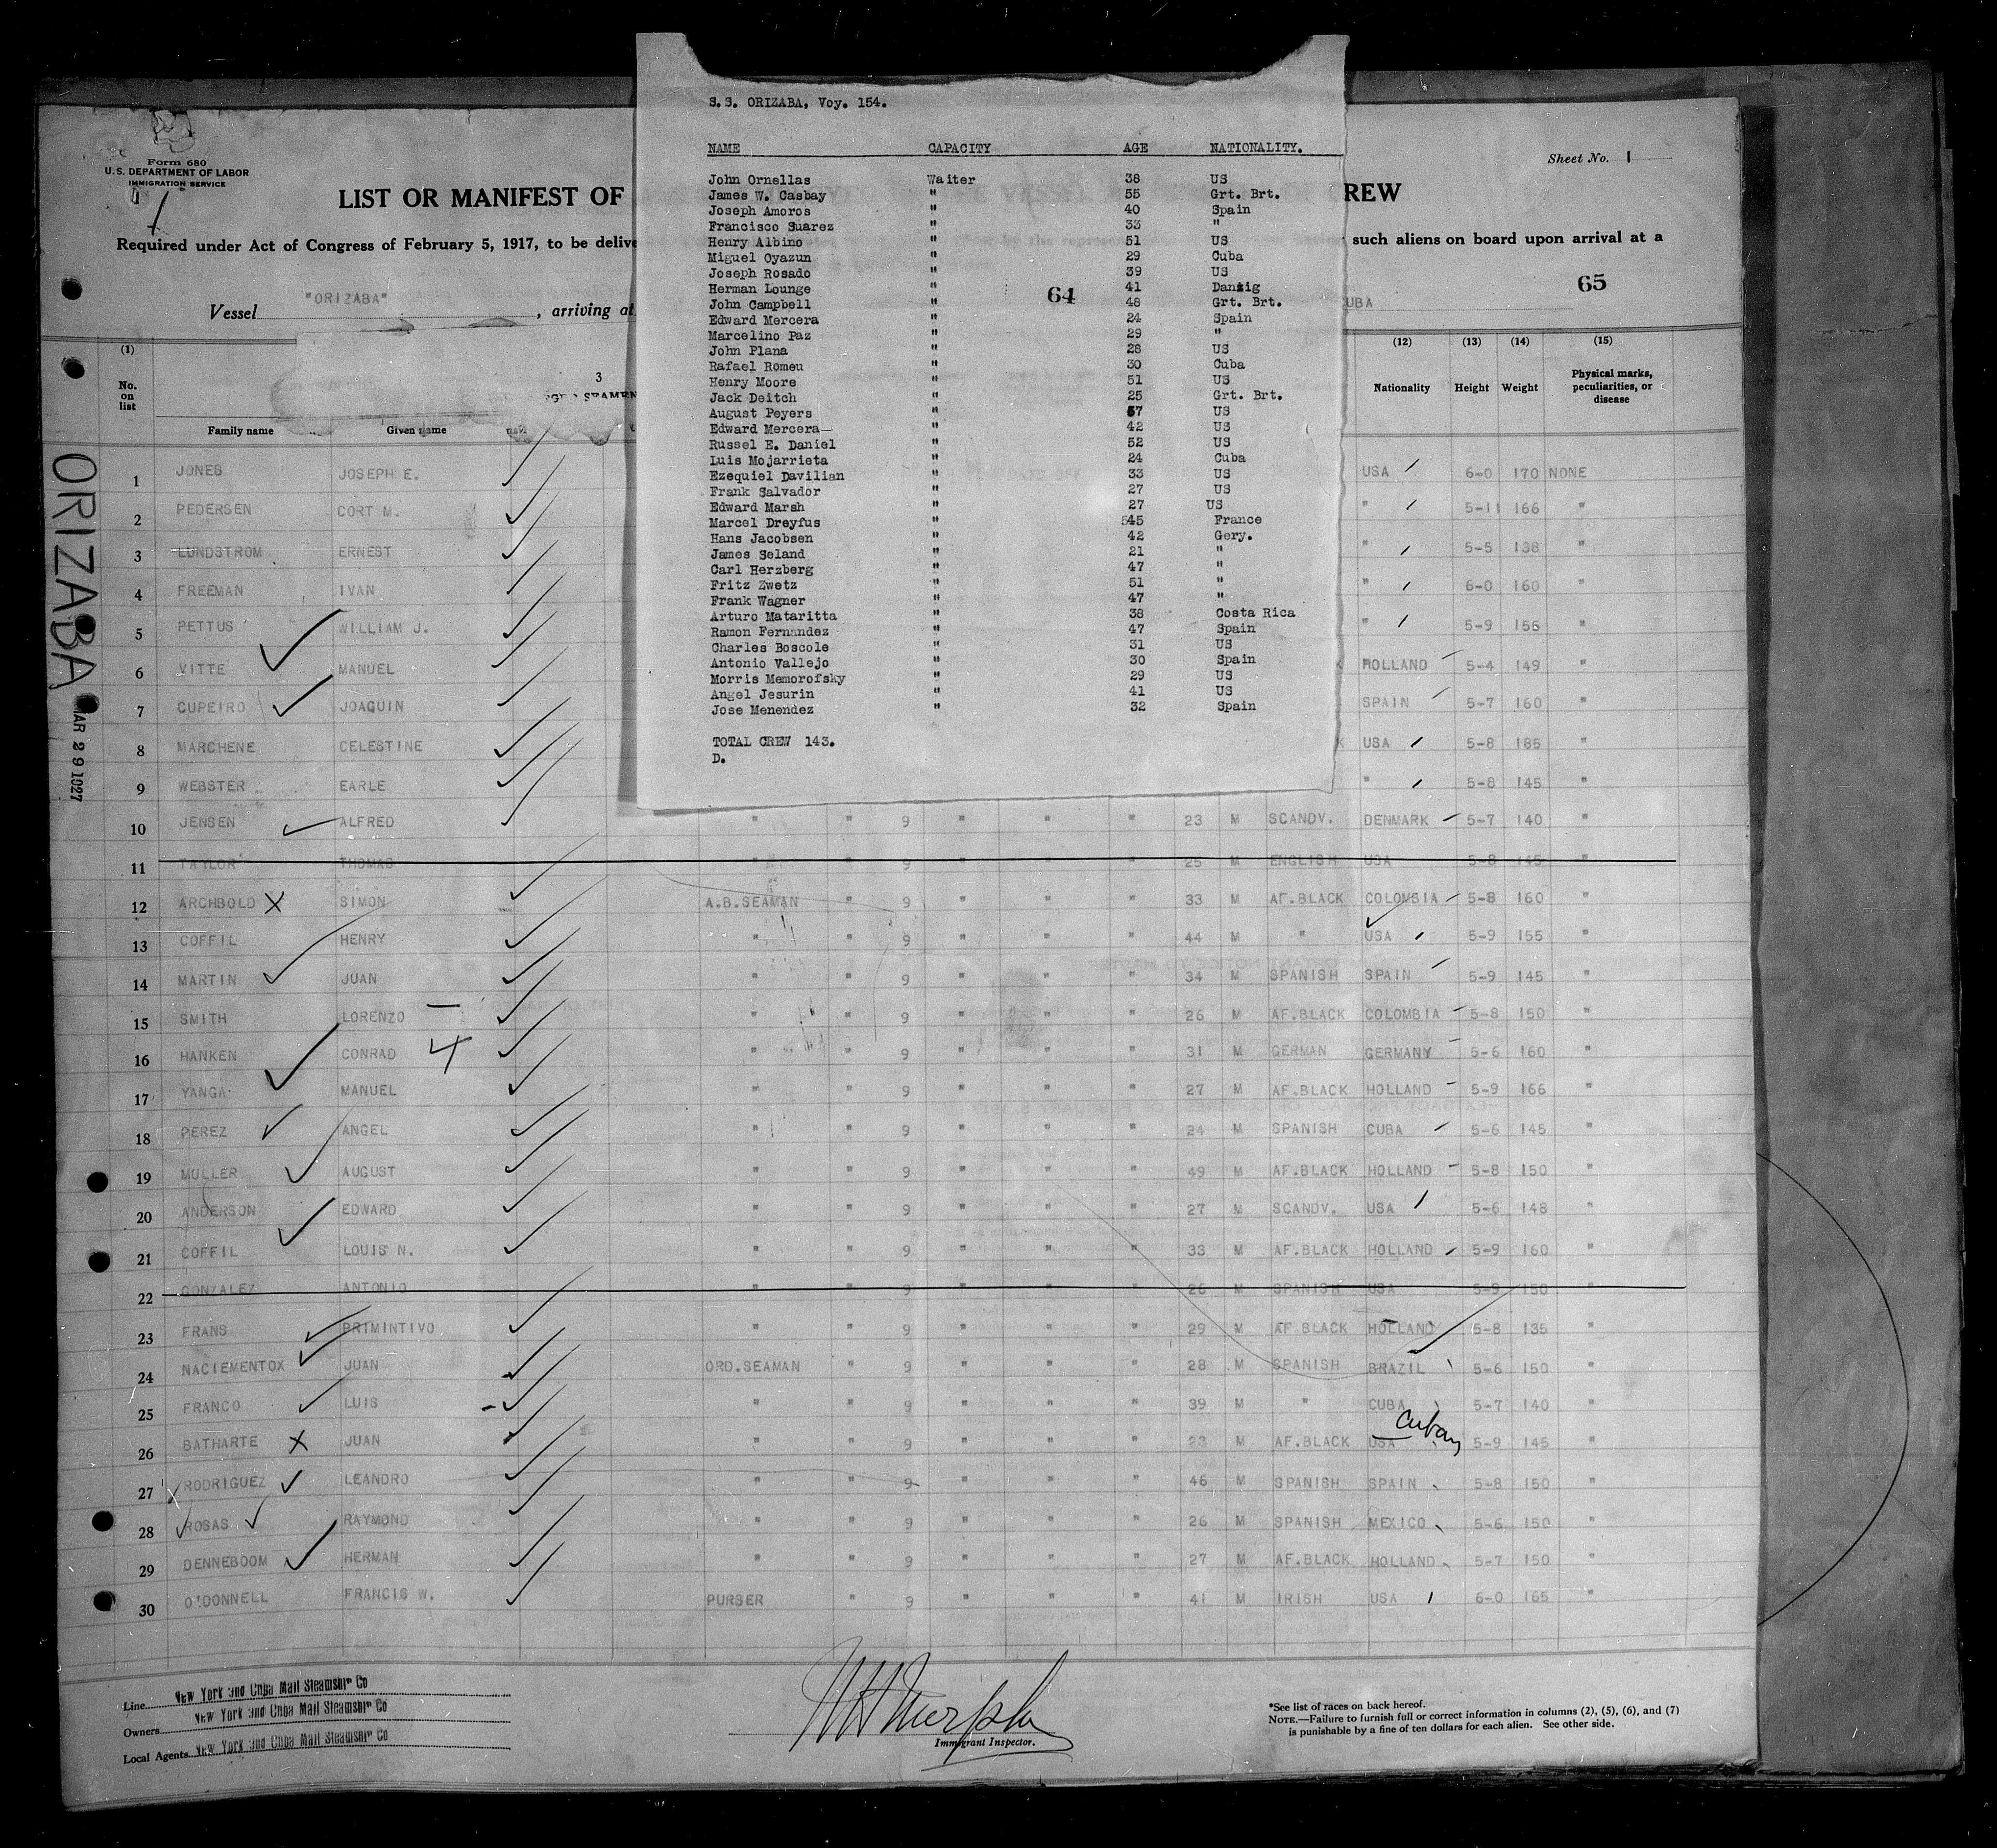 S.S. ORIZABA, Voy. 154.
NAME CAPACITY AGE NATIONALITY.
John Ornellas Waiter 38 US
James W. Casbay " 55 Grt. Brt.
Joseph Amoros " 40 Spain
Francisco Suarez " 33 "
Henry Albino " 51 US
Miguel Oyazun " 29 Cuba
Joseph Rosado " 39 US
Herman Lounge " 41 Danzig
64
John Campbell " 48 Grt. Brt.
Edward Mercera " 24 Spain
Marcelino Paz " 29 "
John Plana " 28 US
Rafael Romeu " 30 Cuba
Henry Moore " 51 US
Jack Deitch " 25 Grt. Brt.
August Peyers " 57 US
Edward Mercera " 42 US
Russel E. Daniel " 52 US
Luis Mojarrieta " 24 Cuba
Ezequiel Davilian " 33 US
Frank Salvador " 27 US
Edward Marsh " 27 US
Marcel Dreyfus " 45 France
Hans Jacobsen " 42 Gery.
James Seland " 21 "
Carl Herzberg " 47 "
Fritz Zwetz " 51 "
Frank Wagner " 47 "
Arturo Mataritta " 38 Costa Rica
Ramon Fernandez " 47 Spain
Charles Boscole " 31 US
Antonio Vallejo " 30 Spain
Morris Memorofsky " 29 US
Angel Jesurin " 41 US
Jose Menendez " 32 Spain
TOTAL CREW 143.
D.
Form 680
U.S. DEPARTMENT OF LABOR
IMMIGRATION SERVICE
Sheet No. 1
LIST OR MANIFEST OF REW
Required under Act of Congress of February 5, 1917, to be delive such aliens on board upon arrival at a
65
Vessel "ORIZABA", arriving at UBA
(1) 3 (12) (13) (14) (15)
No. on list Family name Given name Nationality Height Weight Physical marks, peculiarities, or disease
ORIZABA
MAR 29 1927
1 JONES JOSEPH E. USA 6-0 170 NONE
2 PEDERSEN CORT M. " 5-11 166 "
3 LUNDSTROM ERNEST " 5-5 138 "
4 FREEMAN IVAN " 6-0 160 "
5 PETTUS WILLIAM J. " 5-9 155 "
6 VITTE MANUEL HOLLAND 5-4 149 "
7 CUPEIRO JOAQUIN SPAIN 5-7 160 "
8 MARCHENE CELESTINE USA 5-8 185 "
9 WEBSTER EARLE " 5-8 145 "
10 JENSEN ALFRED " " 9 " " " 23 M SCANDV. DENMARK 5-7 140 "
11 TAYLOR THOMAS 9 " " " 25 M ENGLISH USA 5-8 145 "
12 ARCHBOLD X SIMON A.B.SEAMAN " 9 " " " 33 M AF.BLACK COLOMBIA 5-8 160 "
13 COFFIL HENRY " " 9 " " " 44 M " USA 5-9 155 "
14 MARTIN JUAN " " 9 " " " 34 M SPANISH SPAIN 5-9 145 "
15 SMITH LORENZO " " 9 " " " 26 M AF.BLACK COLOMBIA 5-8 150 "
16 HANKEN CONRAD 4 " " 9 " " " 31 M GERMAN GERMANY 5-6 160 "
17 YANGA MANUEL " " 9 " " " 27 M AF.BLACK HOLLAND 5-9 166 "
18 PEREZ ANGEL " " 9 " " " 24 M SPANISH CUBA 5-6 145 "
19 MULLER AUGUST " " 9 " " " 49 M AF.BLACK HOLLAND 5-8 150 "
20 ANDERSON EDWARD " " 9 " " " 27 M SCANDV. USA 5-6 148 "
21 COFFIL LOUIS N. " " 9 " " " 33 M AF.BLACK HOLLAND 5-9 160 "
22 GONZALEZ ANTONIO " " 9 " " " 26 M SPANISH USA 5-9 150 "
23 FRANS PRIMINTIVO " " 9 " " " 29 M AF.BLACK HOLLAND 5-8 135 "
24 NACIEMENTOX JUAN ORD.SEAMAN " 9 " " " 28 M SPANISH BRAZIL 5-6 150 "
25 FRANCO LUIS " " 9 " " " 39 M " CUBA 5-7 140 "
26 BATHARTE X JUAN " " 9 " " " 23 M AF.BLACK USA Cuban 5-9 145 "
27 RODRIGUEZ LEANDRO " " 9 " " " 46 M SPANISH SPAIN 5-8 150 "
28 ROSAS RAYMOND " " 9 " " " 26 M SPANISH MEXICO 5-6 150 "
29 DENNEBOOM HERMAN " " 9 " " " 27 M AF.BLACK HOLLAND 5-7 150 "
30 O'DONNELL FRANCIS W. PURSER " 9 " " " 41 M IRISH USA 6-0 165 "
Line New York and Cuba Mail Steamship Co
Owners New York and Cuba Mail Steamship Co
Local Agents New York and Cuba Mail Steamship Co
Murphy
Immigrant Inspector.
*See list of races on back hereof.
NOTE.—Failure to furnish full or correct information in columns (2), (5), (6), and (7)
is punishable by a fine of ten dollars for each alien. See other side.